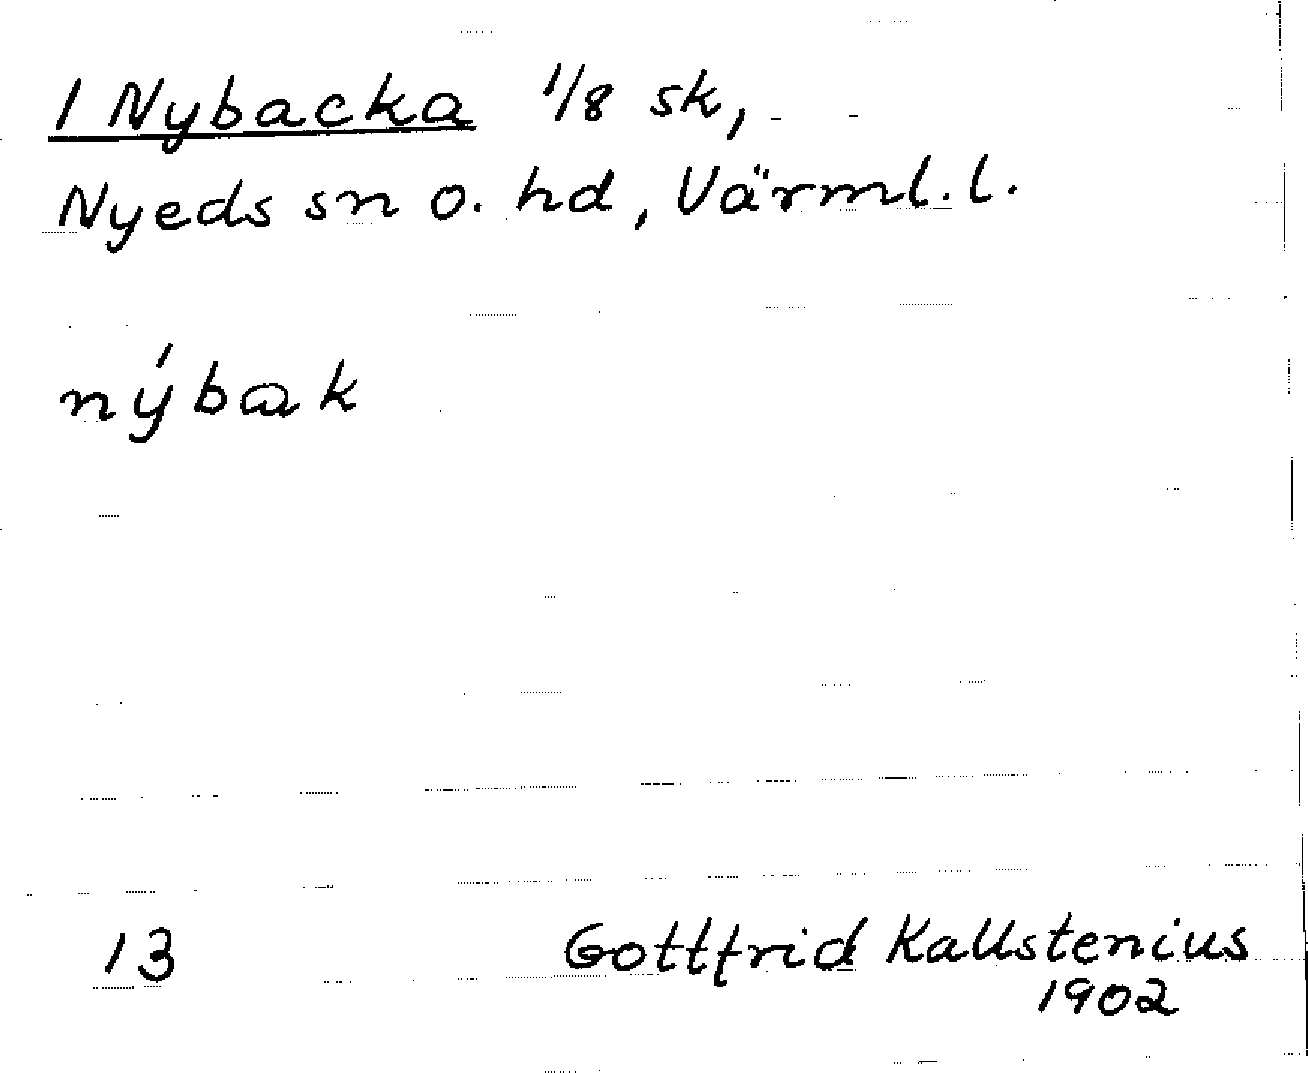 1 Nybacka 1/8 sk,
Nyeds sn o. hd, Värml. l.
nýbak
13
Gottfrid Kallstenius
1902